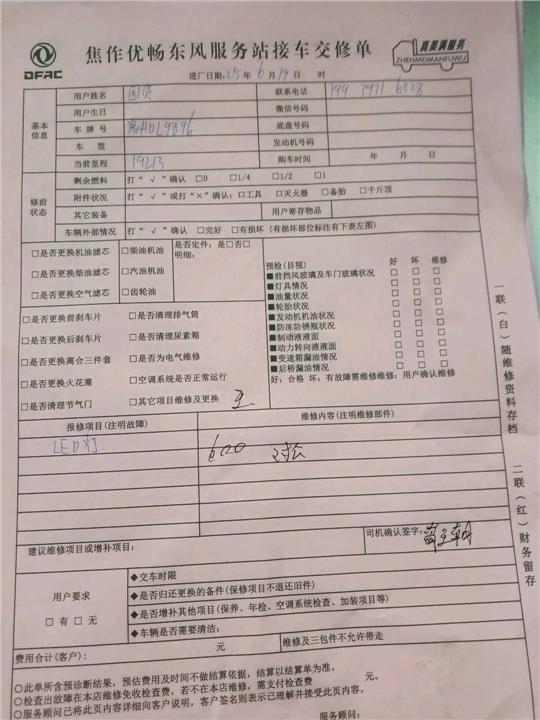 DFAC
焦作优畅东风服务站接车交修单
真美满服务
ZHENMEIMANFUWU
进厂日期:25年6月19日 时
基本信息
用户姓名
联系电话 199 3971 6328
用户生日
微信号码
车牌号
底盘号码
车 型
发动机号码
当前里程 19213
购车时间 年 月 日
修前状态
剩余燃料 打“√”确认 □0 □1/4 □1/2 □1
附件状况 打“√”或打“×”确认:□工具 □灭火器 □备胎 □千斤顶
其它装备
用户寄存物品
车辆外部情况 打“√”确认 □完好 □有损坏(有损坏部位标注有下表左图)
□是否更换机油滤芯 □柴油机油 是否定件:是□否□
明细:
□是否更换柴油滤芯 □汽油机油
□是否更换空气滤芯 □齿轮油
□是否更换前刹车片 □是否清理排气筒
□是否更换后刹车片 □是否清理尿素箱
□是否更换离合三件套 □是否为电气维修
□是否更换火花塞 □空调系统是否正常运行
□是否清理节气门 □其它项目维修及更换
预检(目视) 好 坏 维修
■前挡风玻璃及车门玻璃状况 □ □ □
■灯具情况 □ □ □
■油量状况 □ □ □
■轮胎状况 □ □ □
■发动机机油状况 □ □ □
■防冻防锈瓶状况 □ □ □
■制动液液面 □ □ □
■动力转向液液面 □ □ □
■变速箱漏油情况 □ □ □
■后桥漏油情况 □ □ □
好:合格 坏:有故障需维修维修:用户确认维修
报修项目(注明故障)
维修内容(注明维修部件)
LED灯
600
司机确认签字:
建议维修项目或增补项目:
用户要求
□有 □无
◆交车时限
◆是否归还更换的备件(保修项目不退还旧件)
◆是否增补其他项目(保养、年检、空调系统检查、加装项目等)
◆车辆是否需要清洁:
费用合计(客户): 元
维修及三包件不允许带走
○此单所含预诊断结果,预估费用及时间不做结算依据,结算以结算单为准。
○检查出故障在本店维修免收检查费,若不在本店维修,需支付检查费 元。
○服务顾问已将此页内容详细向客户说明,客户签名则表示已理解并接受此页内容。
服务顾问:
一联(白)随维修资料存档
二联(红)财务留存